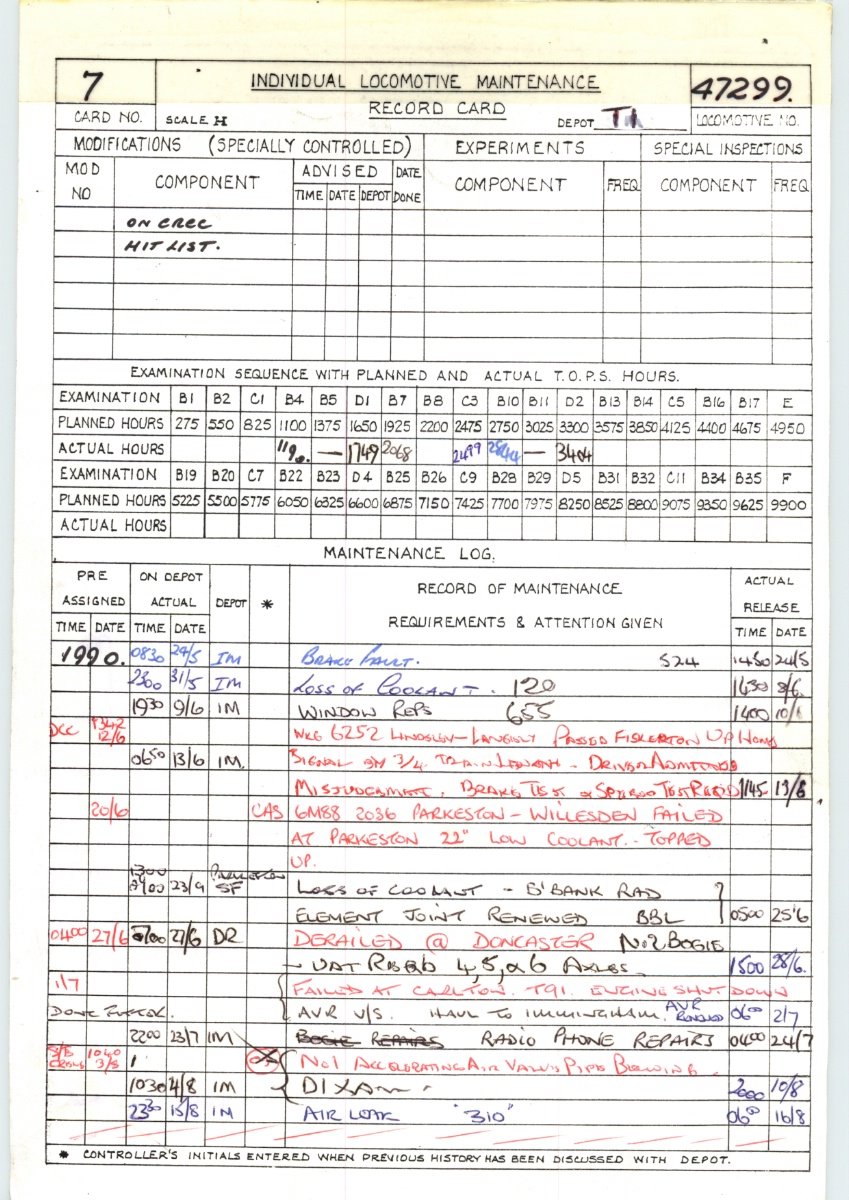 7 INDIVIDUAL LOCOMOTIVE MAINTENANCE 47299.
CARD NO. SCALE H RECORD CARD DEPOT TI LOCOMOTIVE NO.
MODIFICATIONS (SPECIALLY CONTROLLED) EXPERIMENTS SPECIAL INSPECTIONS
MOD NO COMPONENT ADVISED DATE DONE COMPONENT FREQ COMPONENT FREQ
TIME DATE DEPOT
ON CREC
HIT LIST.
EXAMINATION SEQUENCE WITH PLANNED AND ACTUAL T.O.P.S. HOURS.
EXAMINATION B1 B2 C1 B4 B5 D1 B7 B8 C3 B10 B11 D2 B13 B14 C5 B16 B17 E
PLANNED HOURS 275 550 825 1100 1375 1650 1925 2200 2475 2750 3025 3300 3575 3850 4125 4400 4675 4950
ACTUAL HOURS — 1749 2068 2499 — 3404
EXAMINATION B19 B20 C7 B22 B23 D4 B25 B26 C9 B28 B29 D5 B31 B32 C11 B34 B35 F
PLANNED HOURS 5225 5500 5775 6050 6325 6600 6875 7150 7425 7700 7975 8250 8525 8800 9075 9350 9625 9900
ACTUAL HOURS
MAINTENANCE LOG.
PRE ASSIGNED ON DEPOT ACTUAL DEPOT * RECORD OF MAINTENANCE ACTUAL RELEASE
REQUIREMENTS & ATTENTION GIVEN
TIME DATE TIME DATE TIME DATE
1990. 0830 24/5 IM BRAKE FAULT. S24 1450 24/5
2300 31/5 IM LOSS OF COOLANT. 120 1630 8/6
1930 9/6 IM WINDOW REPS 655 1400 10/
DCC 1342 12/6 WKG 6Z52 LINDSEY-LANGLEY PASSED FISKERTON UP HOME
0650 13/6 IM. SIGNAL BY 3/4 TRAIN LENGTH - DRIVER ADMITTED
MISJUDGEMENT. BRAKE TEST & SPEEDO TEST REQ'D 1145 13/6
20/6 CAS 6M88 2036 PARKESTON - WILLESDEN FAILED
AT PARKESTON 22" LOW COOLANT. - TOPPED
UP.
1300 PARKESTON
23/ SF LOSS OF COOLANT - B'BANK RAD
ELEMENT JOINT RENEWED BBL 0500 25'6
0400 27/6 0700 27/6 DR DERAILED @ DONCASTER No2 BOGIE
- UAT REQ'D 4,5,&6 AXLES. 1500 28/6.
1/7 FAILED AT CARLTON. T91. ENGINE SHUT DOWN
AVR V/S. HAUL TO IMMINGHAM. AVR RENEWED 0600 2/7
2200 23/7 IM BOGIE REPAIRS RADIO PHONE REPAIRS 0400 24/7
1040 3/8 No1 ACCELERATING AIR VALVE PIPE BLOWING.
1030 4/8 IM DIXAM. 2000 10/8
2330 15/8 IM AIR LEAK "310" 0600 16/8
* CONTROLLER'S INITIALS ENTERED WHEN PREVIOUS HISTORY HAS BEEN DISCUSSED WITH DEPOT.